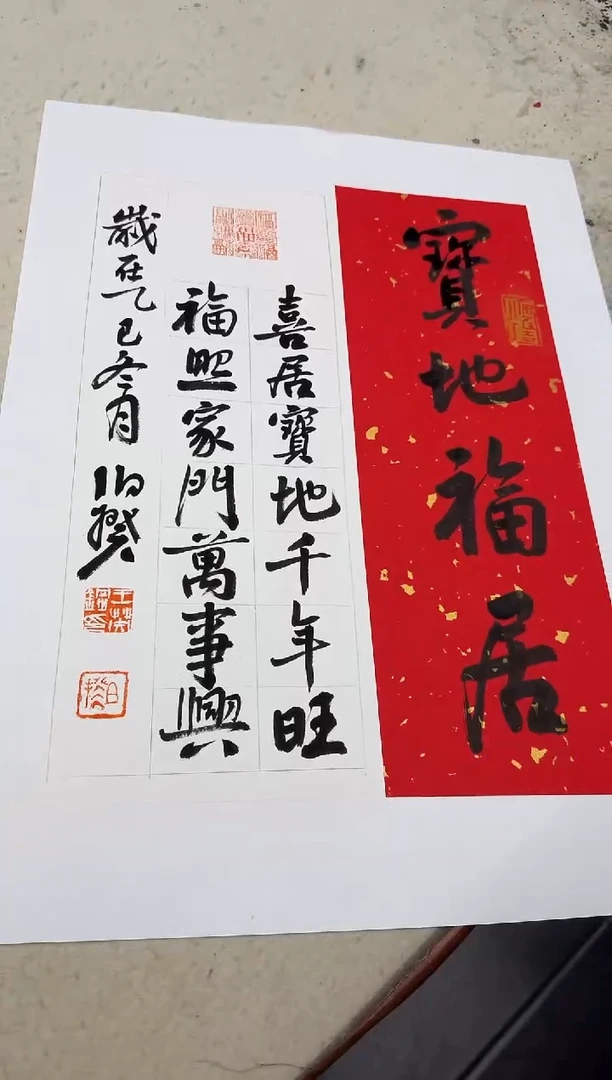 寶地福居
喜居寶地千年旺
福照家門萬事興
歲在乙巳冬月